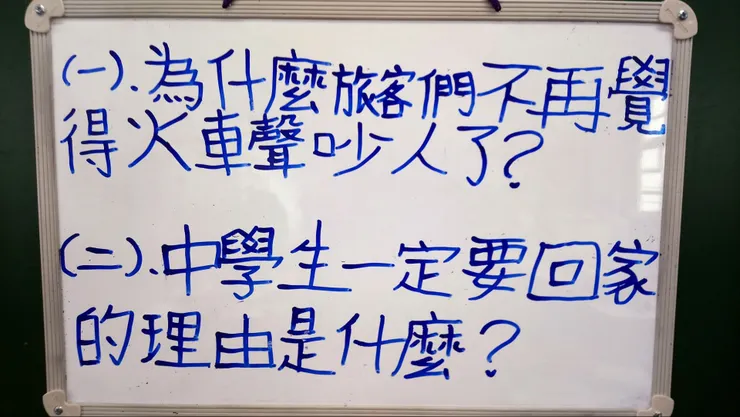 (一).為什麼旅客們不再覺
得火車聲吵人了?
(二).中學生一定要回家
的理由是什麼?